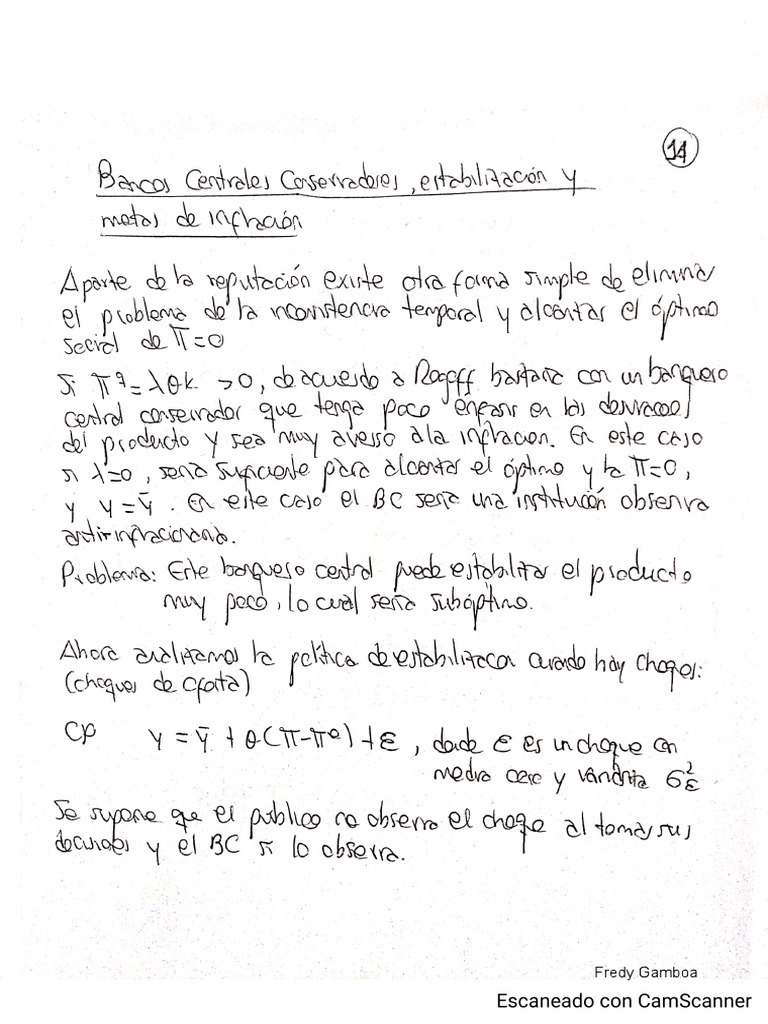 14
Bancos Centrales Conservadores, estabilización y
metas de inflación
Aparte de la reputación existe otra forma simple de eliminar
el problema de la inconsistencia temporal y alcanzar el óptimo
social de π=0
Si π^g = λθk > 0, de acuerdo a Rogoff bastaría con un banquero
central conservador que tenga poco énfasis en las desviaciones
del producto y sea muy averso a la inflación. En este caso
si λ=0, sería suficiente para alcanzar el óptimo y la π=0,
y y = ȳ. En este caso el BC sería una institución obsesiva
antiinflacionaria.
Problema: Este banquero central puede estabilizar el producto
muy poco, lo cual sería subóptimo.
Ahora analizamos la política de estabilización cuando hay choques:
(choques de oferta)
CP y = ȳ + θ(π-π^e) + ε, donde ε es un choque con
media cero y varianza σ²ε
Se supone que el público no observa el choque al tomar sus
decisiones y el BC si lo observa.
Fredy Gamboa
Escaneado con CamScanner